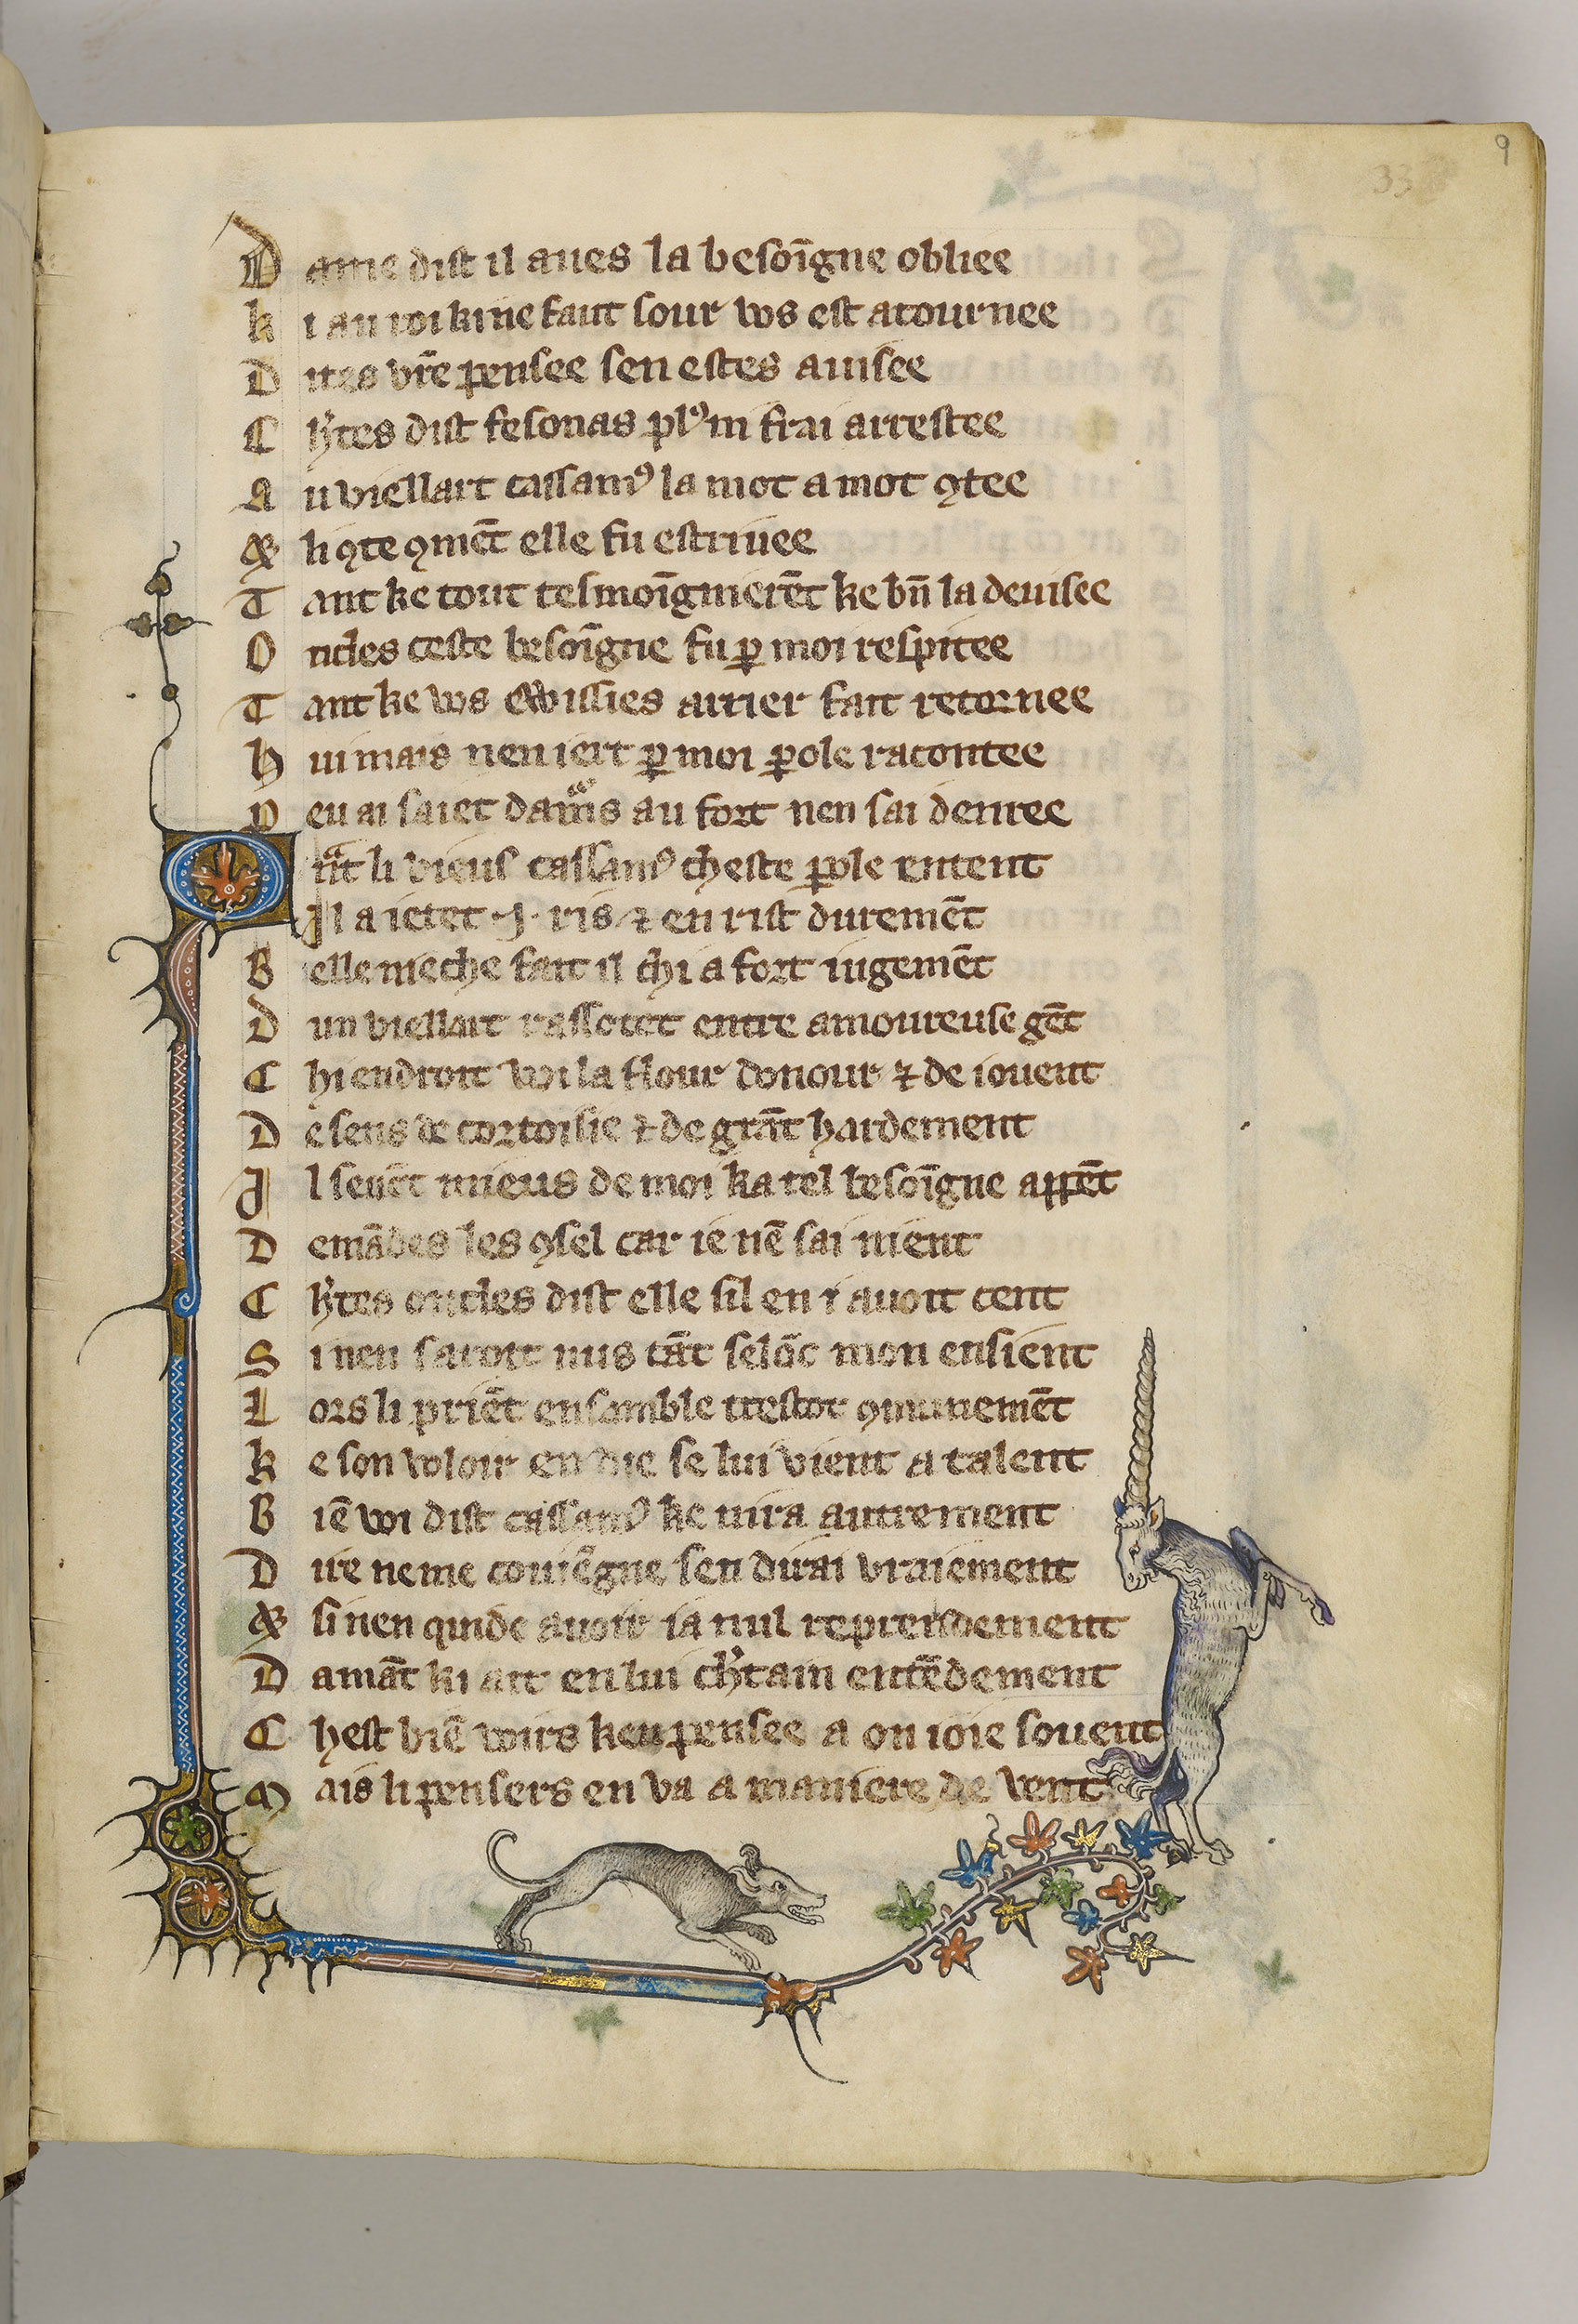 9
33
Dame dist il aues la besoīgne obliee
ki au roi ki ne faut sour vos est atournee
Dites vr̄e pensee sen estes auisee
Ch'tes dist fesonas plꝰ ni frai arrestee
Au viellart cassamꝰ la mot a mot ꝯtee
⁊ li ꝯte ꝯmēt elle fu estriuee
Tant ke tout tesmoīgnierēt ke bn̄ la deuisee
Oncles ceste besoīgne fu ꝑ moi respitee
Tant ke vos ewissies arrier fait retornee
hui mais nen iert ꝑ moi ꝑole racontee
peu ai saiet damͣs au fort nen sai denree
Qnͣt li vieus cassamꝰ cheste ꝑole entent
Jl a ietet .J. ris ⁊ en rist duremēt
Belle nieche fait il chi a fort iugemēt
Dun viellart rassotet entre amoureuse gēt
Chi endroit voi la flour donour ⁊ de iouent
De sens de cortoisie ⁊ de grāt hardement
Jl seuēt mieus de moi ka tel besoīgne apꝑēt
Demādes les ꝯsel car ie nē sai nient
Ch'tes oncles dist elle sil en i auoit cent
Si nen saroit nus tāt selōc mon ensient
Lors li priēt ensamble trestot ꝯmunemēt
ke son voloir en die se lui vient a talent
Biē voi dist cassamꝰ ke nira autrement
Dire ne me couiēgne sen dirai vraiement
⁊ si nen quide auoir ia nul reprendement
Damāt ki ait en lui ch'tain entēdement
Chest biē voirs keu pensee a on ioie souent
Mais li pensers en va a maniere de vent